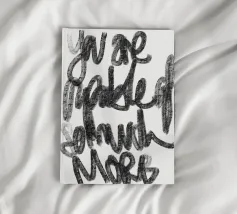 you are
capable of
so much
MORE